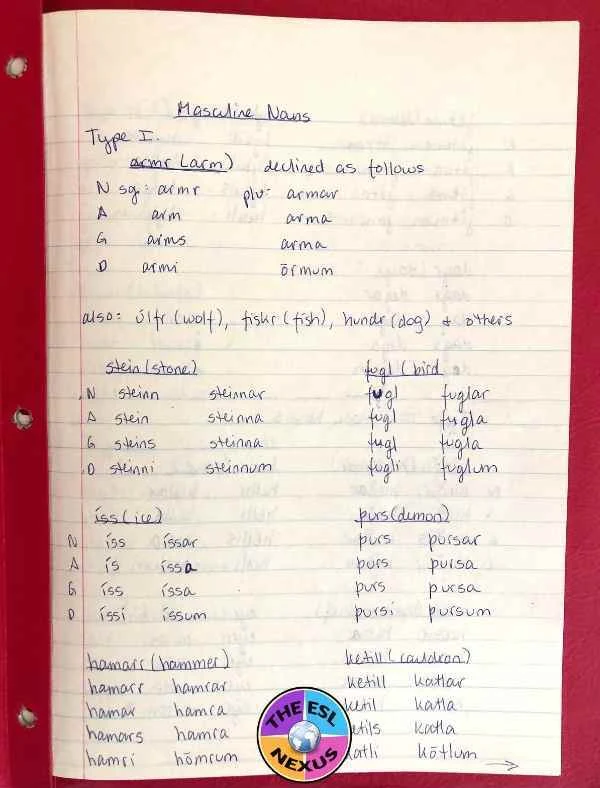 Masculine Nouns
Type I.
armr (arm) declined as follows
N sg: armr plu: armar
A arm arma
G arms arma
D armi ōrmum
also: úlfr (wolf), fiskr (fish), hundr (dog) & others
stein (stone) fugl (bird
N steinn steinnar fugl fuglar
A stein steinna fugl fugla
G steins steinna fugl fugla
D steinni steinnum fugli fuglum
íss (ice) purs (demon)
N íss íssar purs pursar
A ís íssa purs pursa
G íss íssa purs pursa
D íssi íssum pursi pursum
hamarr (hammer) ketill (cauldron)
hamarr hamrar ketill katlar
hamar hamra ketil katla
hamars hamra etils katla
hamri hōmrum katli kōtlum
THE ESL
NEXUS